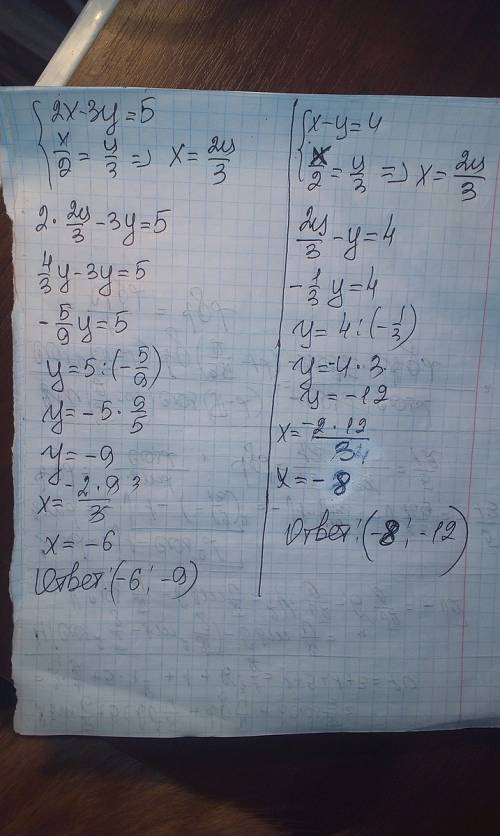 2x-3y=5
x/2 = y/3 => x = 2y/3
2 · 2y/3 - 3y=5
4/3 y - 3y=5
- 5/9 y = 5
y = 5 : (- 5/9)
y = -5 · 9/5
y = -9
x = -2·9 3/3
x = -6
Ответ: (-6; -9)
x-y=4
x/2 = y/3 => x = 2y/3
2y/3 - y = 4
- 1/3 y = 4
y = 4 : (- 1/3)
y = -4 · 3
y = -12
x = -2·12/3
x = -8
Ответ: (-8; -12)